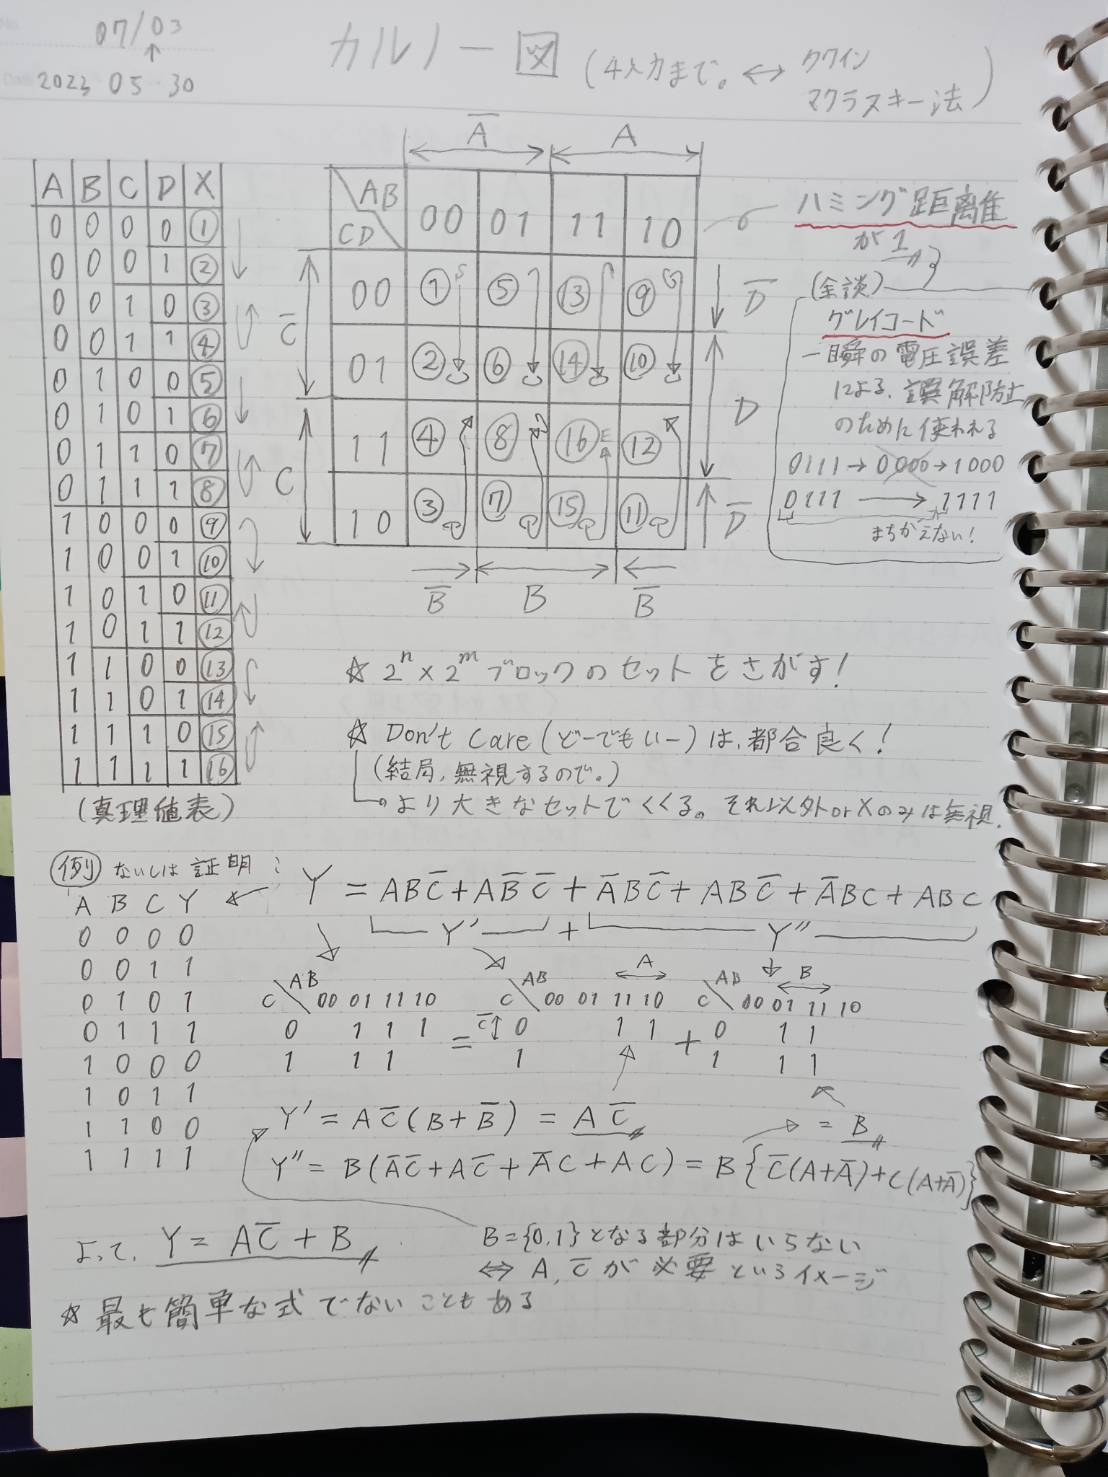 07/03
↑
2023 05-30
カルノー図 (4入力まで。↔ クワイン
マクラスキー法)
A B C D X
0 0 0 0 ①
0 0 0 1 ②
0 0 1 0 ③
0 0 1 1 ④
0 1 0 0 ⑤
0 1 0 1 ⑥
0 1 1 0 ⑦
0 1 1 1 ⑧
1 0 0 0 ⑨
1 0 0 1 ⑩
1 0 1 0 ⑪
1 0 1 1 ⑫
1 1 0 0 ⑬
1 1 0 1 ⑭
1 1 1 0 ⑮
1 1 1 1 ⑯
(真理値表)
A̅ A
AB
CD 00 01 11 10
C̅ 00 ① ⑤ ⑬ ⑨ D̅
01 ② ⑥ ⑭ ⑩ D
C 11 ④ ⑧ ⑯ ⑫
10 ③ ⑦ ⑮ ⑪ D̅
B̅ B B̅
ハミング距離
が1
(余談)
グレイコード
一瞬の電圧誤差
による、誤解防止
のために使われる
0111→0000→1000
0111 → 1111
まちがえない!
☆ 2ⁿ×2ᵐ ブロックのセットをさがす!
☆ Don't Care (どーでもいー) は、都合良く!
(結局、無視するので。)
より大きなセットでくくる。それ以外 or Xのみは無視.
例 ないしは証明:
Y = ABC̅ + AB̅C̅ + A̅BC̅ + ABC̅ + A̅BC + ABC
Y' + Y''
A B C Y
0 0 0 0
0 0 1 1
0 1 0 1
0 1 1 1
1 0 0 0
1 0 1 1
1 1 0 0
1 1 1 1
AB
C 00 01 11 10
0 1 1 1
1 1 1
=
A
AB
C 00 01 11 10
C̅ 0 1 1
1
+
B
AB
C 00 01 11 10
0 1 1
1 1 1
Y' = AC̅(B+B̅) = AC̅
= B
Y'' = B(A̅C̅+AC̅+A̅C+AC) = B{C̅(A+A̅)+C(A+A̅)}
よって、Y = AC̅ + B
B={0,1}となる部分はいらない
⇔ A, C̅が必要というイメージ
☆ 最も簡単な式でないこともある